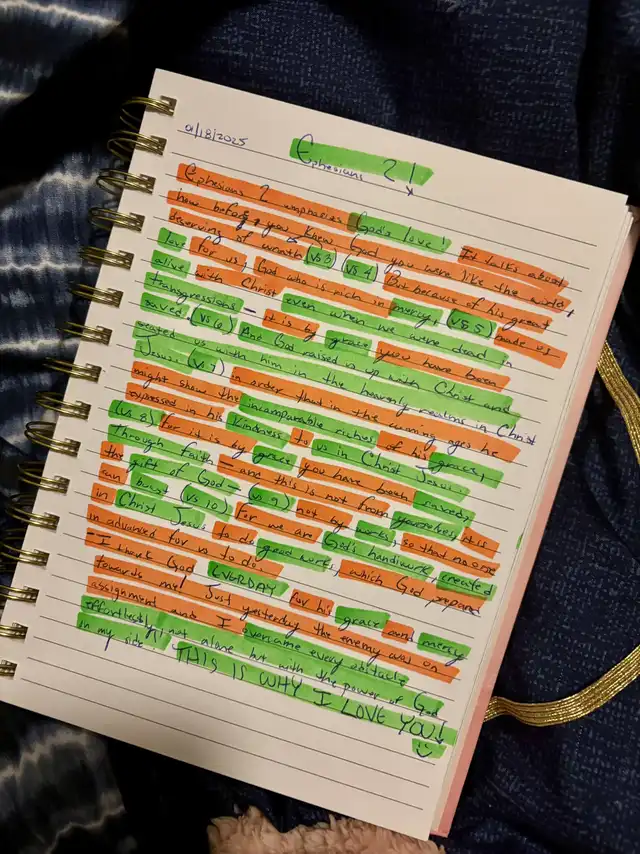 01/18/2025
Ephesians 2!
Ephesians 2 emphasies God's love! It talks about
how before you knew God you were like the world,
deserving of wrath (vs 3) (vs 4) But because of his great
love for us, God who is rich in mercy, (vs 5) made us
alive with Christ even when we were dead in
transgressions - it is by grace you have been
saved. (vs 6) And God raised us up with Christ and
seated us with him in the heavenly realms in Christ
Jesus, (vs 7) in order that in the coming ages he
might show the incomparable riches of his grace,
expressed in his kindness to us in Christ Jesus.
(vs. 8) For it is by grace you have been saved,
through faith - and this is not from yourselves, it is
the gift of God - (vs 9) not by works, so that no one
can boast (vs 10) For we are God's handiwork, created
in Christ Jesus to do good works, which God prepare
in advanced for us to do.
- I thank God EVERDAY for his grace and mercy
towards me! Just yesterday the enemy was on
assignment and I overcame every obstacle
effortlessly, not alone but with the power of God
in my side. THIS IS WHY I LOVE YOU!